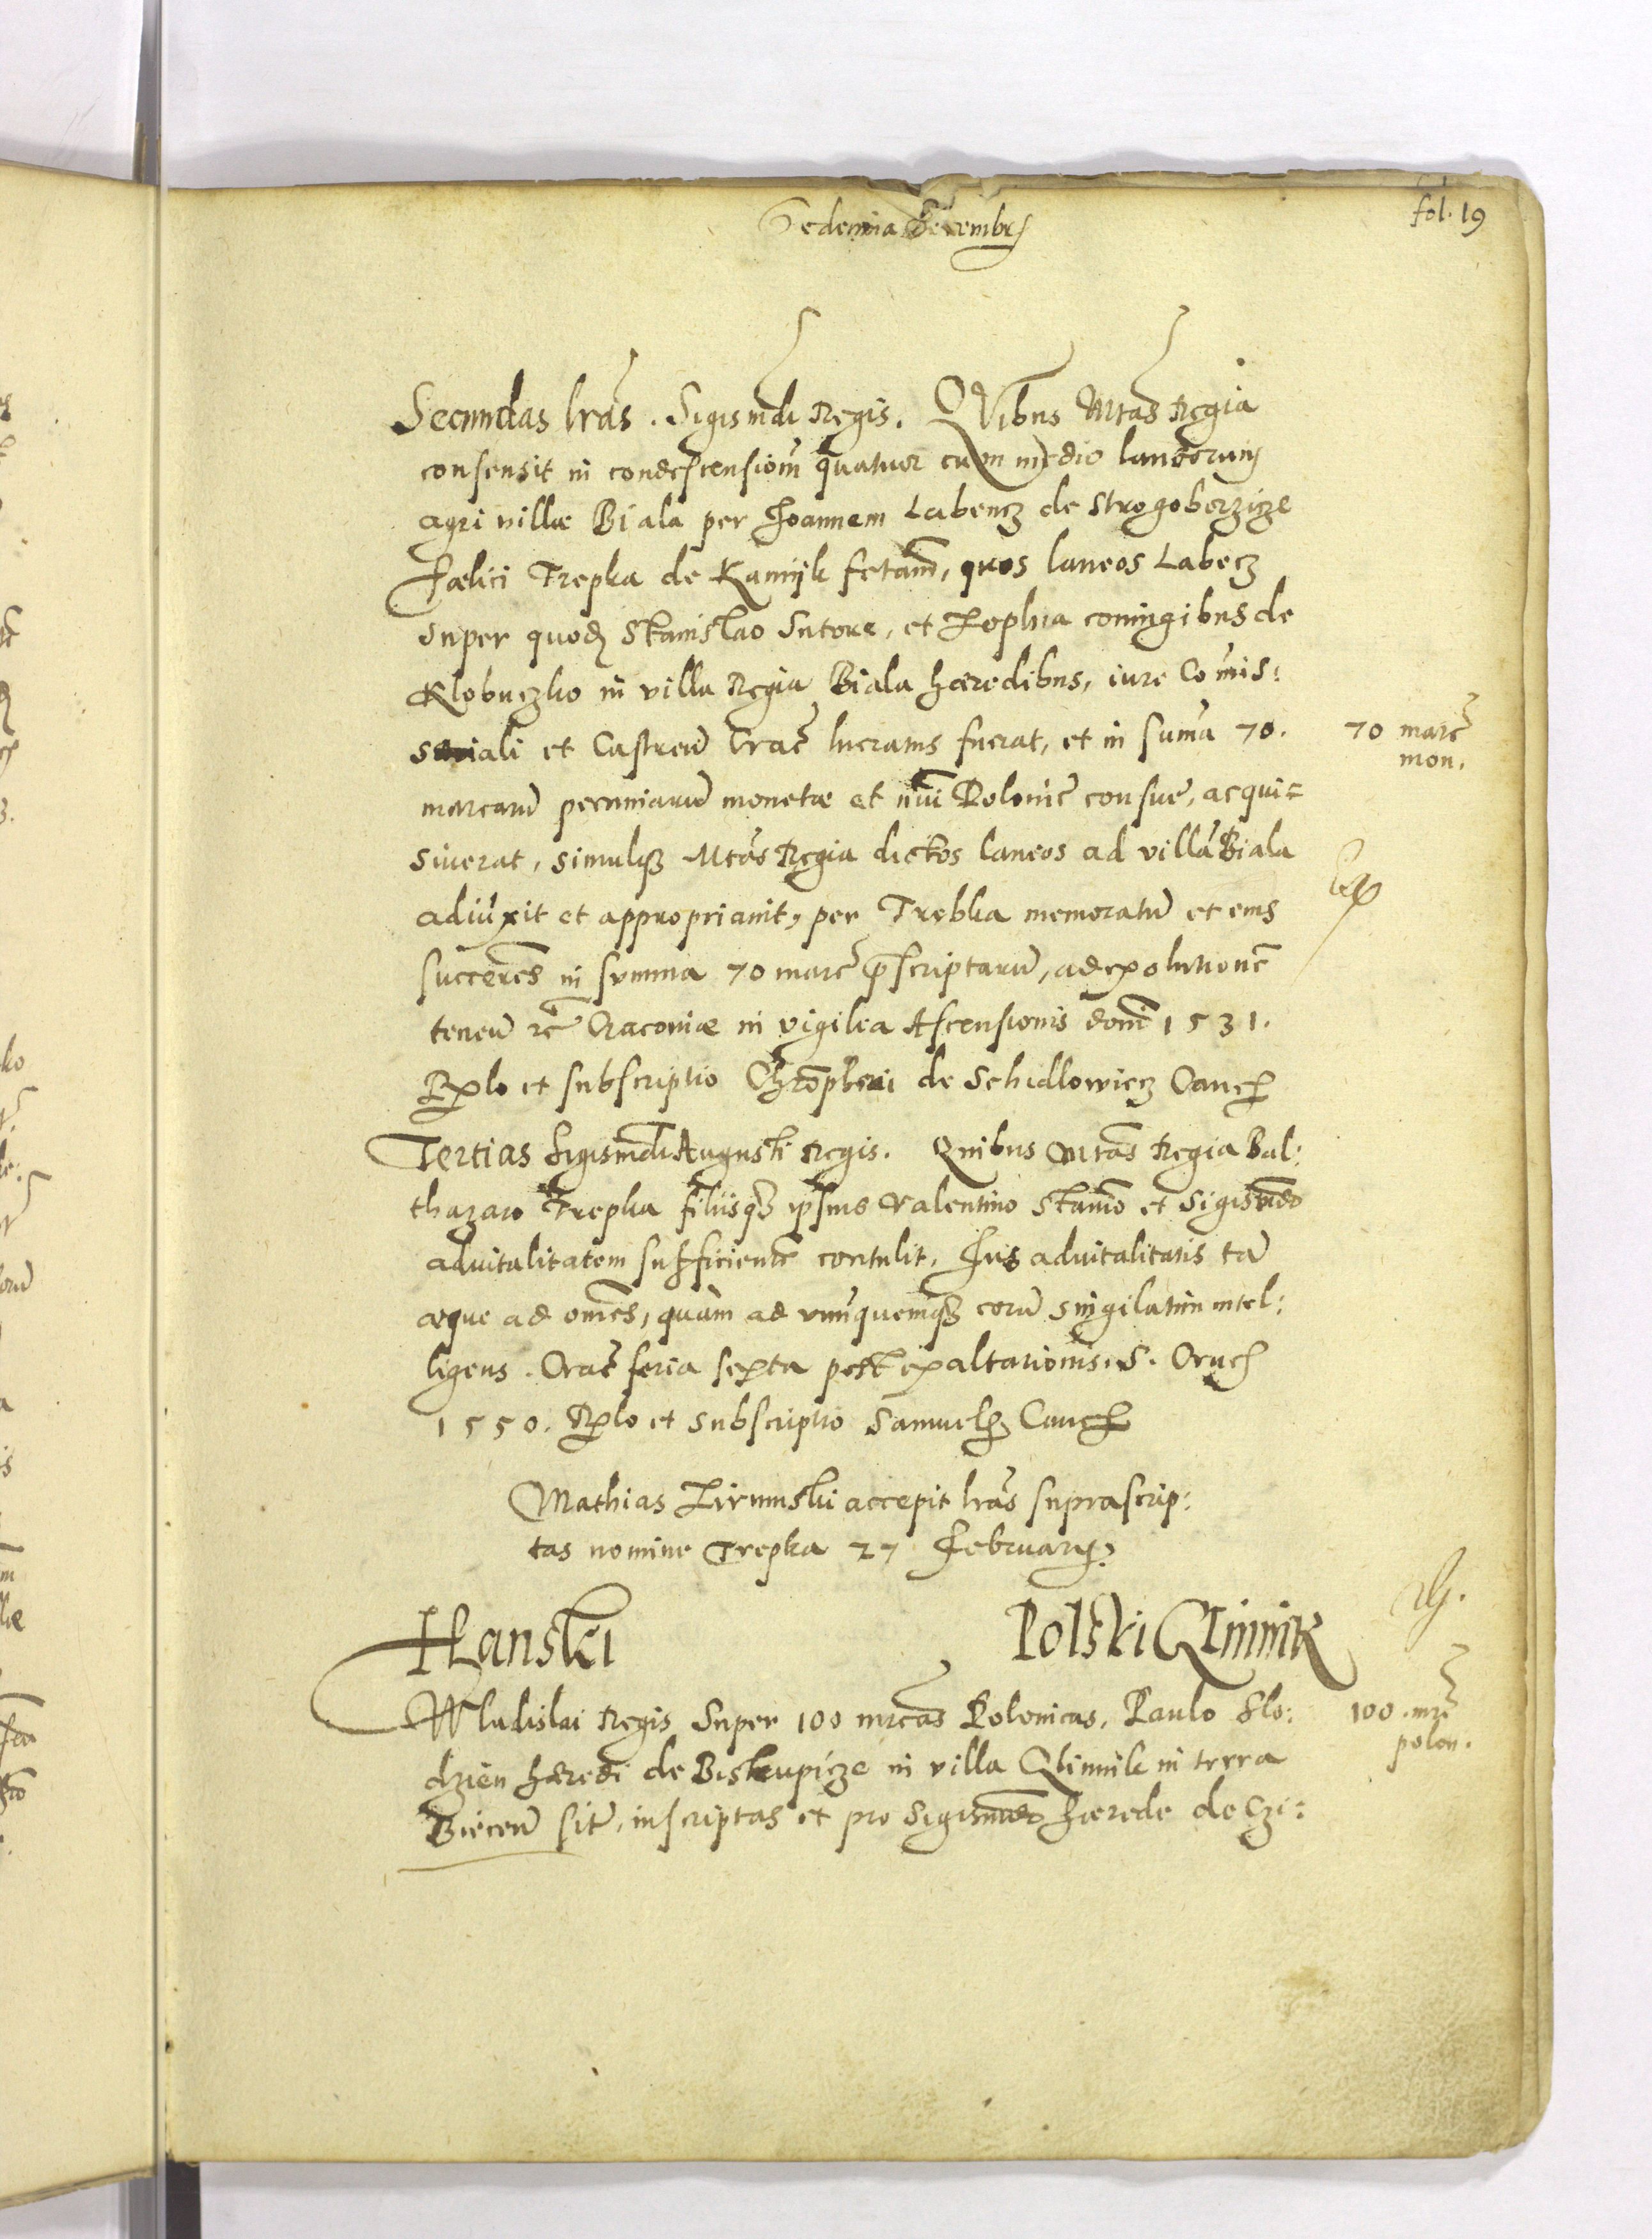 Sedecima Decembr
fol. 19
Secundas lras. Sigismdi Regis. QVibus Mtas Regia
consensit in condescensionem quatuor cum medio laneorum
agri villae Biala per Joannem Labencz de Strogoberzicze
Faelici Trepka de Kamijk fctam, quos laneos Labecz
super quod Stanislao Sutore, et Zophia coniugibus de
Klobuczko in villa Regia Biala haeredibus, iure Comis:
sariali et Castren Crac lucratus fuerat, et in suma 70.
70 marc
mon.
marcaru pecuniaru monetae et nui Polonic consue, acqui=
siverat, simulq Mtas Regia dictos laneos ad villa Biala
adiuxit et appropriavit, per Trebka memoratu et eius
succeres in summa 70 marc pscriptaru, ad exolutione
tenen rc Cracoviae in vigilia Ascensionis domi 1531.
Rlo et subscriptio Chrophori de Schidlowiecz Canc
Tertias Sigismdi Augusti Regis. Quibus Mtas Regia Bal:
thazaro Trepka filiisq ipsius Valentino Stanio et Sigismdo
advitalitatem sufficiente contulit, Jus advitalitatis ta
aeque ad omes, quam ad vnuquemq eoru singilatim intel:
ligens. Crac feria sexta post exaltationis. S. Cruc
1550. Rlo et subscriptio Samuel Canc
Mathias Zirnuski accepit lras suprascrip:
tas nomine Trepka 27 Februarij
Hanski Polski Climik
Wladislai Regis Super 100 mrcas Polonicas, Paulo Slo:
100. mrc
polon.
dzien haeredi de Biskupicze in villa Climik in terra
Biecen sit, inscriptas et pro Sigismdo haerede de Czi: